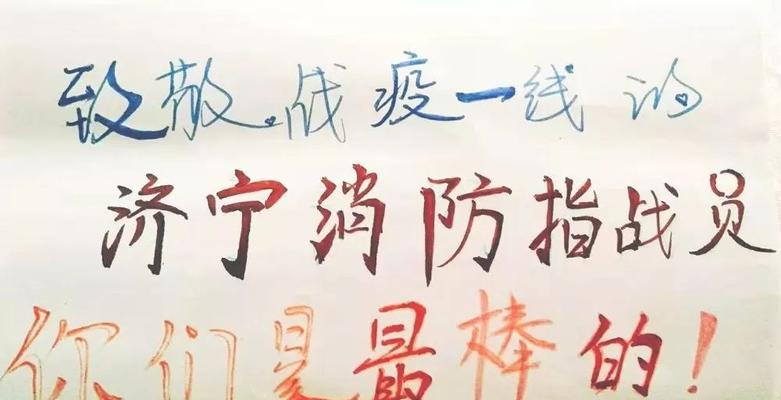 致敬战疫一线的
济宁消防指战员
你们是最棒的！